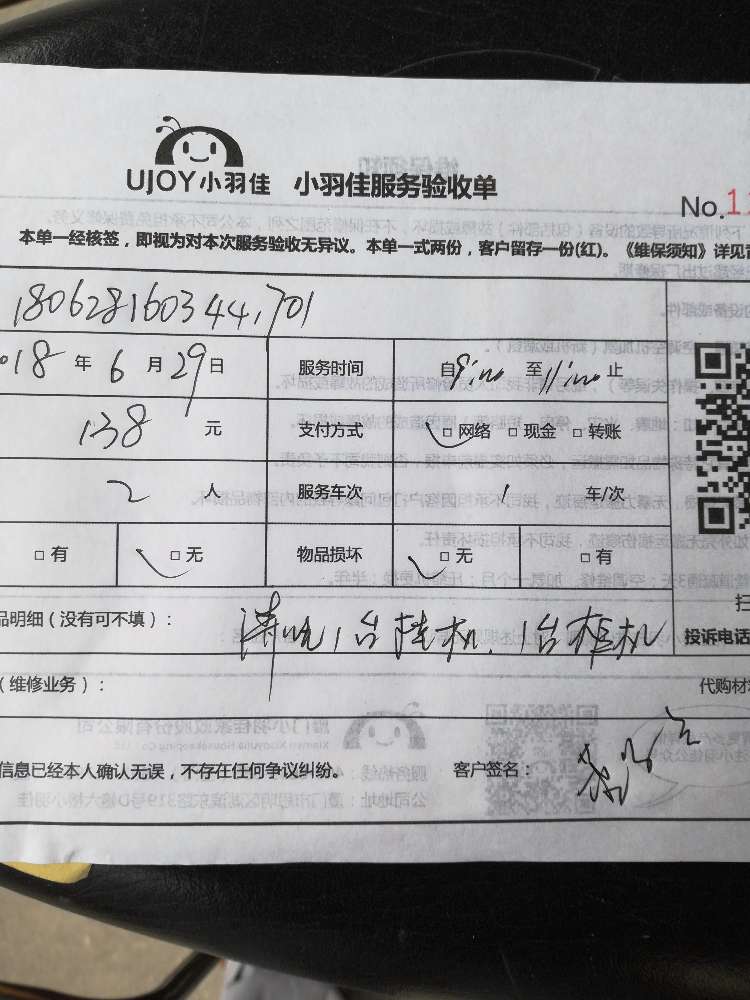 UJOY小羽佳 小羽佳服务验收单
No.1
本单一经核签，即视为对本次服务验收无异议。本单一式两份，客户留存一份(红)。《维保须知》详见
180628160344,701
018 年 6 月 29 日 服务时间 自 9:00 至 11:00 止
138 元 支付方式 □ 网络 □ 现金 □ 转账
2 人 服务车次 1 车/次
□ 有 □ 无 物品损坏 □ 无 □ 有
品明细（没有可不填）： 清洗1台挂机、1台柜机
扫
投诉电话
（维修业务）：
代购材
信息已经本人确认无误，不存在任何争议纠纷。 客户签名：